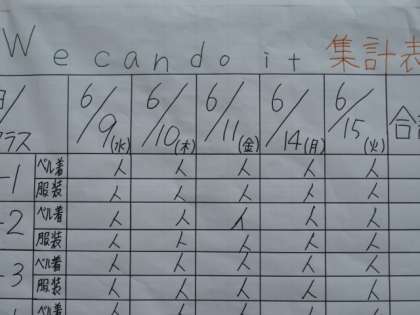 We can do it 集計表
6/9(水) 6/10(木) 6/11(金) 6/14(月) 6/15(火) 合
クラス
-1 ベル着 人 人 人 人 人
服装 人 人 人 人 人
-2 ベル着 人 人 人 人 人
服装 人 人 人 人 人
-3 ベル着 人 人 人 人 人
服装 人 人 人 人 人